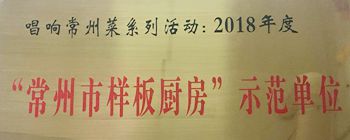 唱响常州菜系列活动：2018年度
“常州市样板厨房”示范单位